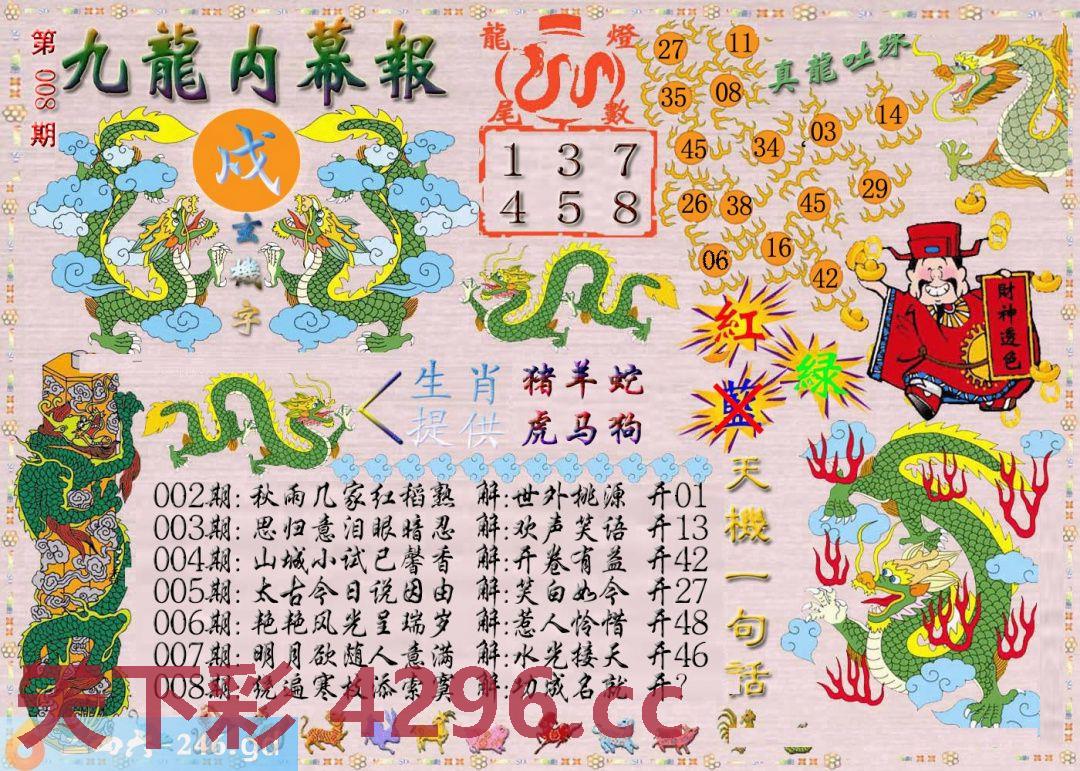 第008期
九龍内幕報
戌
玄機字
龍燈
尾數
1 3 7
4 5 8
27 11
35 08
45 34 03 14
26 38 45 29
06 16 42
真龍吐珠
財神透色
紅
藍
綠
生肖提供
猪羊蛇
虎马狗
天機一句话
002期: 秋雨几家红稻熟 解:世外桃源 开01
003期: 思归意泪眼暗忍 解:欢声笑语 开13
004期: 山城小试已馨香 解:开卷有益 开42
005期: 太古今日说因由 解:笑白如今 开27
006期: 艳艳风光呈瑞岁 解:惹人怜惜 开48
007期: 明月欲随人意满 解:水光接天 开46
008期: 绕遍寒枝添索寞 解:功成名就 开?
天下彩 4296.cc
=246.gd